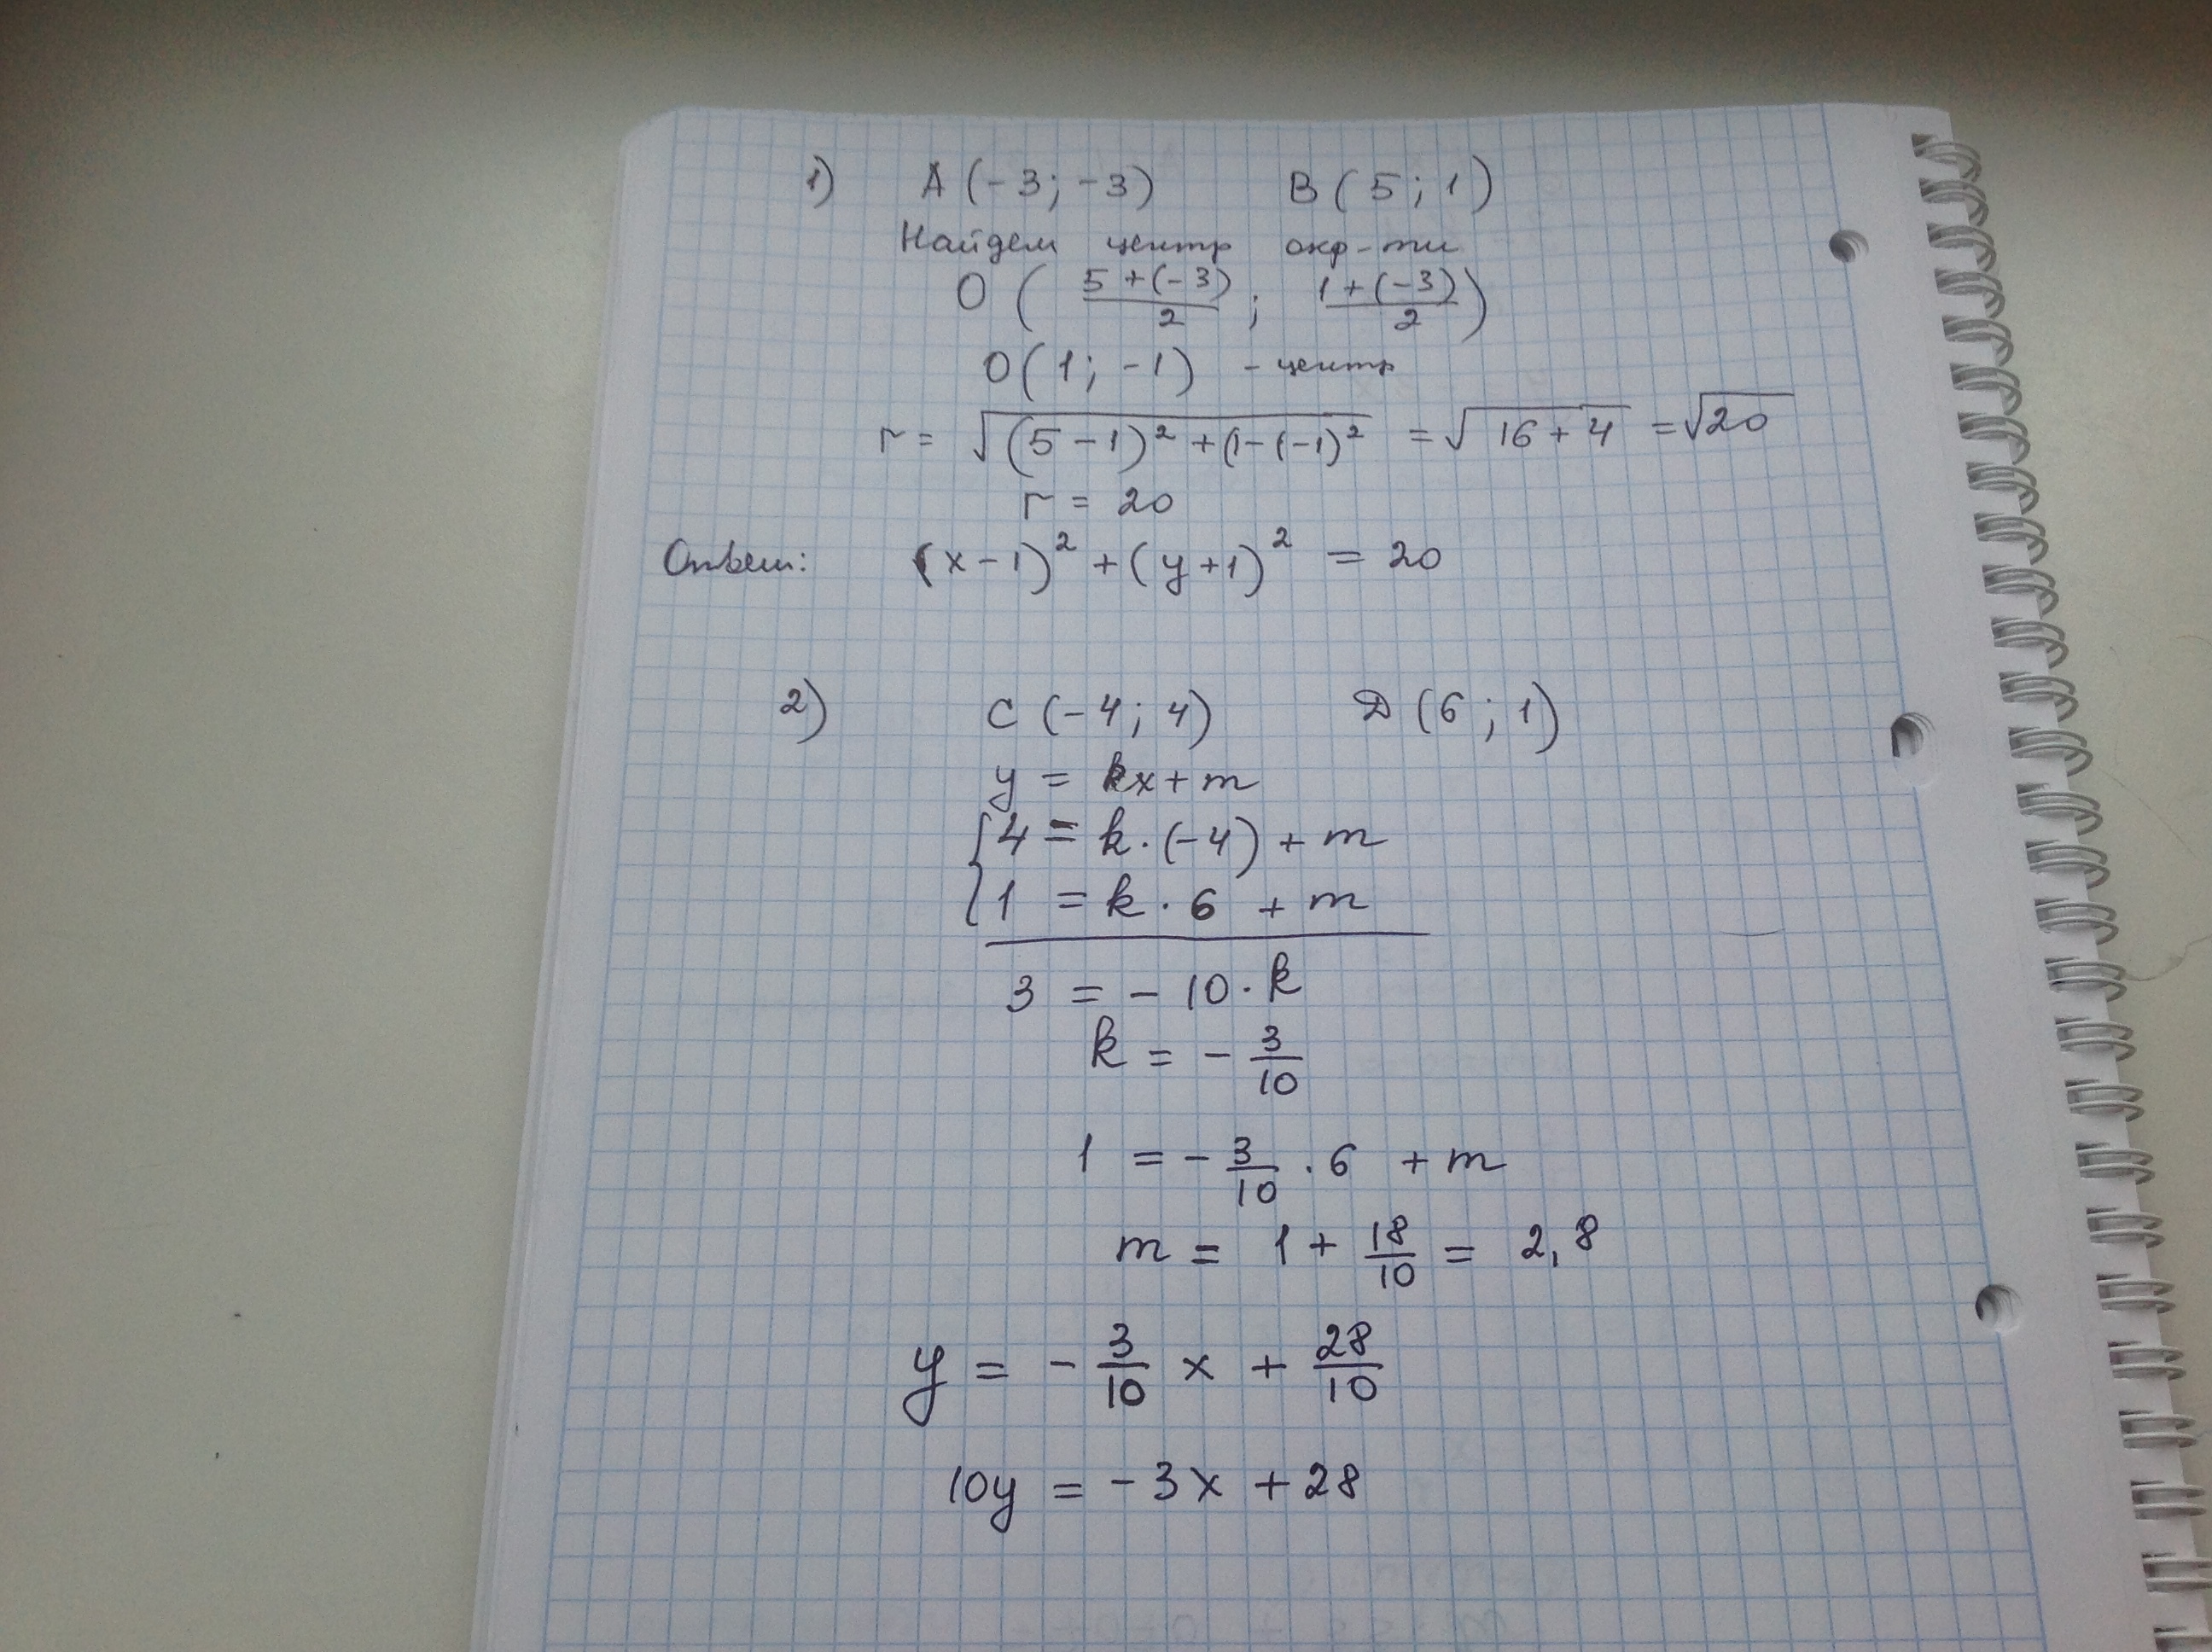 1) A (-3; -3) B (5; 1)
Найдем центр окр-ти
O ( (5+(-3))/2 ; (1+(-3))/2 )
O(1; -1) - центр
r = √((5-1)² + (1-(-1)²) = √(16+4) = √20
r = 20
Ответ: (x-1)² + (y+1)² = 20
2) C (-4; 4) D (6; 1)
y = kx + m
{ 4 = k·(-4) + m
1 = k·6 + m
3 = -10·k
k = -3/10
1 = -3/10 · 6 + m
m = 1 + 18/10 = 2,8
y = -3/10 x + 28/10
10y = -3x + 28